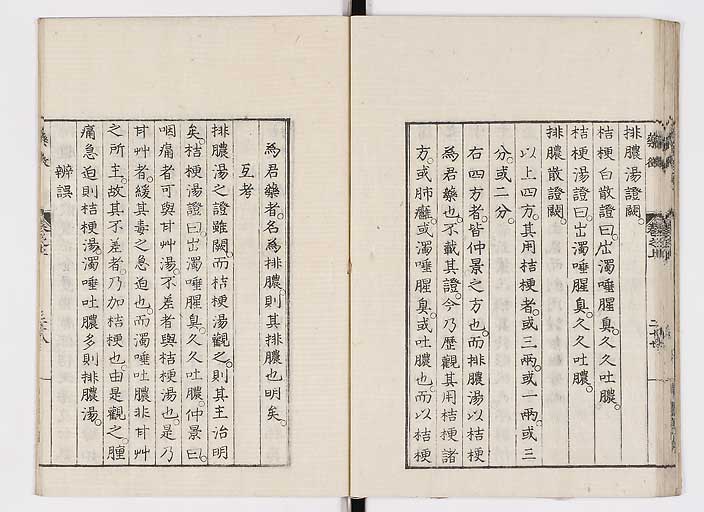 排膿湯證闕。
桔梗白散證曰。出濁唾腥臭。久久吐膿。
桔梗湯證曰。出濁唾腥臭。久久吐膿。
排膿散證闕。
以上四方。其用桔梗者。或三兩。或一兩。或三
分。或二分。
右四方者。皆仲景之方也。而排膿湯以桔梗
為君藥也。不載其證。今乃歷觀其用桔梗諸
方。或肺癰。或濁唾腥臭。或吐膿也。而以桔梗
為君藥者。名為排膿。則其排膿也明矣。
互考
排膿湯之證雖闕。而桔梗湯觀之。則其主治明
矣。桔梗湯證曰。出濁唾腥臭。久久吐膿。仲景曰。
咽痛者可與甘草湯。不差者與桔梗湯也。是乃
甘艸者。緩其毒之急迫也。而濁唾吐膿非甘艸
之所主。故其不差者。乃加桔梗也。由是觀之。腫
痛急迫則桔梗湯。濁唾吐膿多則排膿湯。
辨誤